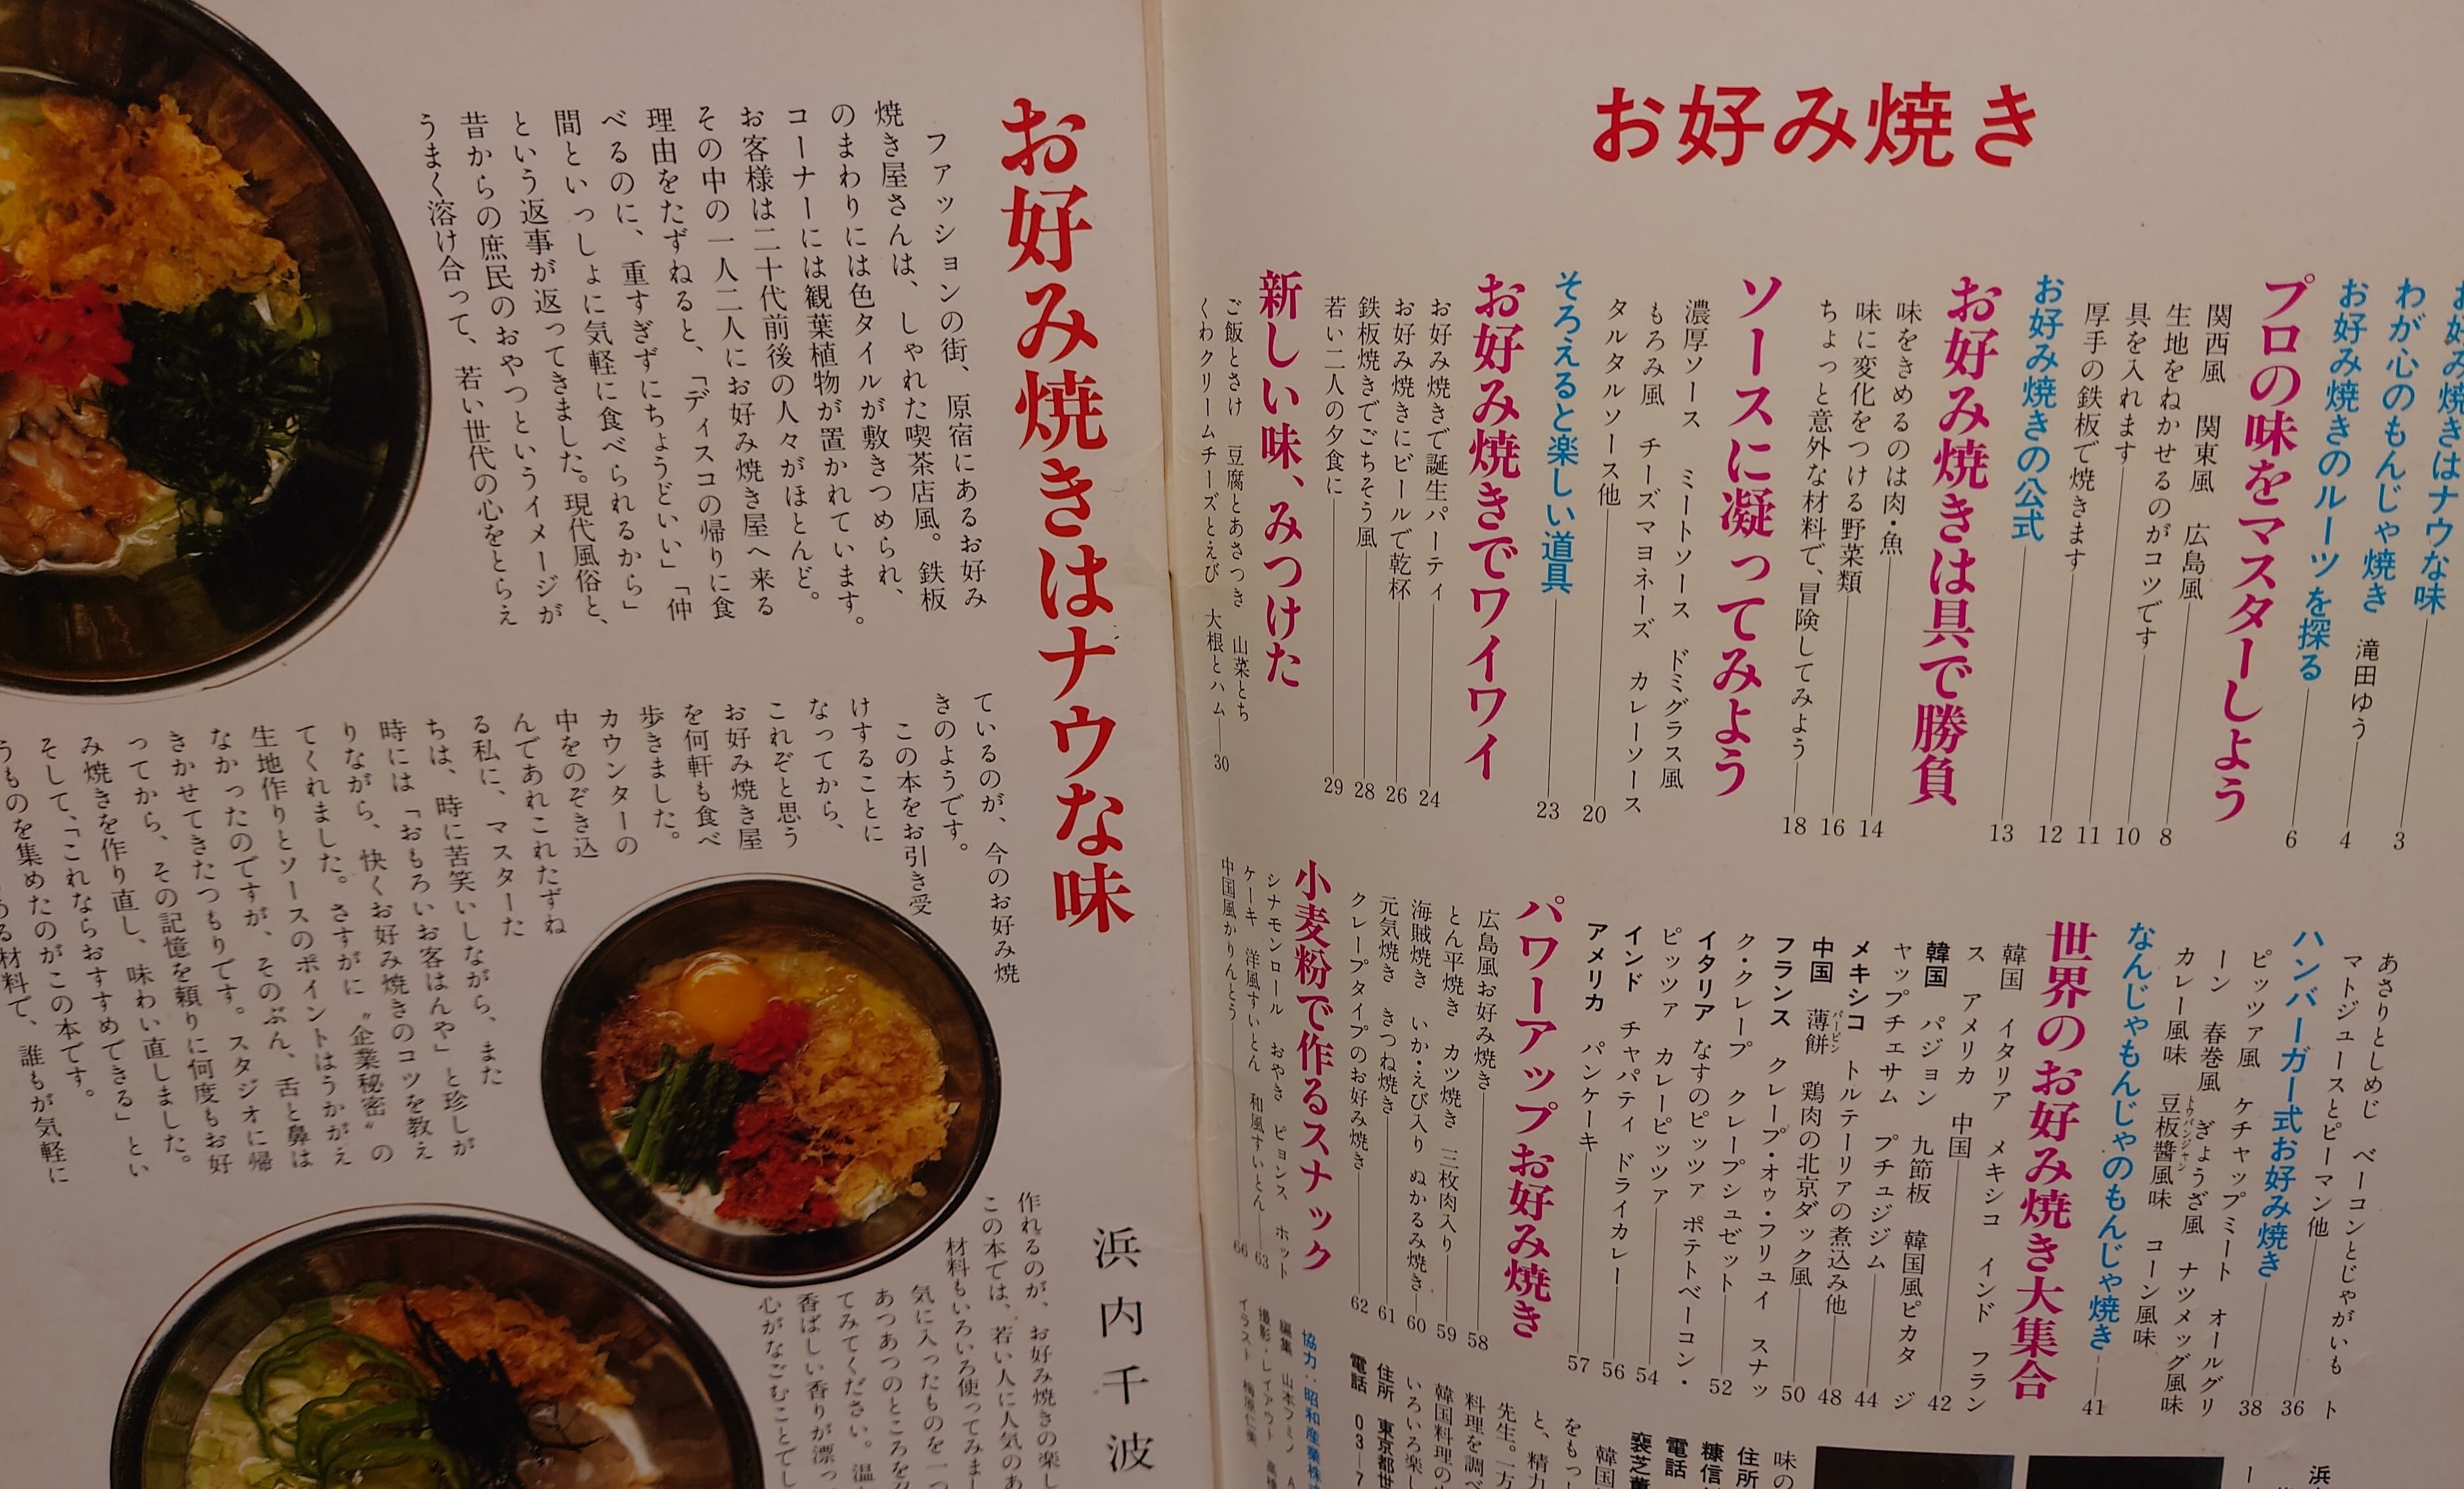 お好み焼き
お好み焼きはナウな味 3
わが心のもんじゃ焼き 滝田ゆう 4
お好み焼きのルーツを探る 6
プロの味をマスターしよう
関西風 関東風 広島風 8
生地をねかせるのがコツです 10
具を入れます 11
厚手の鉄板で焼きます 12
お好み焼きの公式 13
お好み焼きは具で勝負
味をきめるのは肉・魚 14
味に変化をつける野菜類 16
ちょっと意外な材料で、冒険してみよう 18
ソースに凝ってみよう
濃厚ソース ミートソース ドミグラス風
もろみ風 チーズマヨネーズ カレーソース
タルタルソース他 20
そろえると楽しい道具 23
お好み焼きでワイワイ
お好み焼きで誕生パーティ 24
お好み焼きにビールで乾杯 26
鉄板焼きでごちそう風 28
若い二人の夕食に 29
新しい味、みつけた
ご飯とさけ 豆腐とあさつき 山菜とち
くわクリームチーズとえび 大根とハム 30
あさりとしめじ ベーコンとじゃがいも ト
マトジュースとピーマン他 36
ハンバーガー式お好み焼き 38
ピッツア風 ケチャップミート オールグリ
ーン 春巻風 ぎょうざ風 ナツメッグ風味
カレー風味 豆板醬風味 コーン風味
トウバンジャン
なんじゃもんじゃのもんじゃ焼き 41
世界のお好み焼き大集合
韓国 イタリア メキシコ インド フラン
ス アメリカ 中国 42
韓国 パジョン 九節板 韓国風ピカタ ジ
ャップチェサム プチュジジム 44
メキシコ トルテーリアの煮込み他 48
中国 薄餅 鶏肉の北京ダック風 50
パーピン
フランス クレープ・オゥ・フリュイ スナッ
ク・クレープ クレープシュゼット 52
イタリア なすのピッツァ ポテトベーコン・
ピッツァ カレーピッツァ 54
インド チャパティ ドライカレー 56
アメリカ パンケーキ 57
パワーアップお好み焼き
広島風お好み焼き 58
とん平焼き カツ焼き 三枚肉入り 59
海賊焼き いか・えび入り ぬかるみ焼き 60
元気焼き きつね焼き 61
クレープタイプのお好み焼き 62
小麦粉で作るスナック
シナモンロール おやき ピョンス ホット
ケーキ 洋風すいとん 和風すいとん 63
中国風かりんとう 66
浜
味の
住所
糠信
電話
裵芝薫
韓国
をもっ
と、精力
先生。一方
料理を調べ
韓国料理の
いろいろ楽し
住所 東京都世
電話 03―7
協力:昭和産業株
編集 山本フミノ
撮影・レイアウト 高橋
イラスト
お好み焼きはナウな味
浜内千波
ファッションの街、原宿にあるお好み
焼き屋さんは、しゃれた喫茶店風。鉄板
のまわりには色タイルが敷きつめられ、
コーナーには観葉植物が置かれています。
お客様は二十代前後の人々がほとんど。
その中の一人二人にお好み焼き屋へ来る
理由をたずねると、「ディスコの帰りに食
べるのに、重すぎずにちょうどいい」「仲
間といっしょに気軽に食べられるから」
という返事が返ってきました。現代風俗と、
昔からの庶民のおやつというイメージが
うまく溶け合って、若い世代の心をとらえ
ているのが、今のお好み焼
きのようです。
この本をお引き受
けすることに
なってから、
これぞと思う
お好み焼き屋
を何軒も食べ
歩きました。
カウンターの
中をのぞき込
んであれこれたずね
る私に、マスターた
ちは、時に苦笑いしながら、また
時には「おもろいお客はんや」と珍しが
りながら、快くお好み焼きのコツを教え
てくれました。さすがに〝企業秘密〟の
生地作りとソースのポイントはうかがえ
なかったのですが、そのぶん、舌と鼻は
きかせてきたつもりです。スタジオに帰
ってから、その記憶を頼りに何度もお好
み焼きを作り直し、味わい直しました。
そして、「これならおすすめできる」とい
うものを集めたのがこの本です。
る材料で、誰もが気軽に
作れるのが、お好み焼きの楽し
この本では、若い人に人気のあ
材料もいろいろ使ってみまし
気に入ったものを一つ
あつあつのところを
てみてください。温
香ばしい香りが漂っ
心がなごむことでし